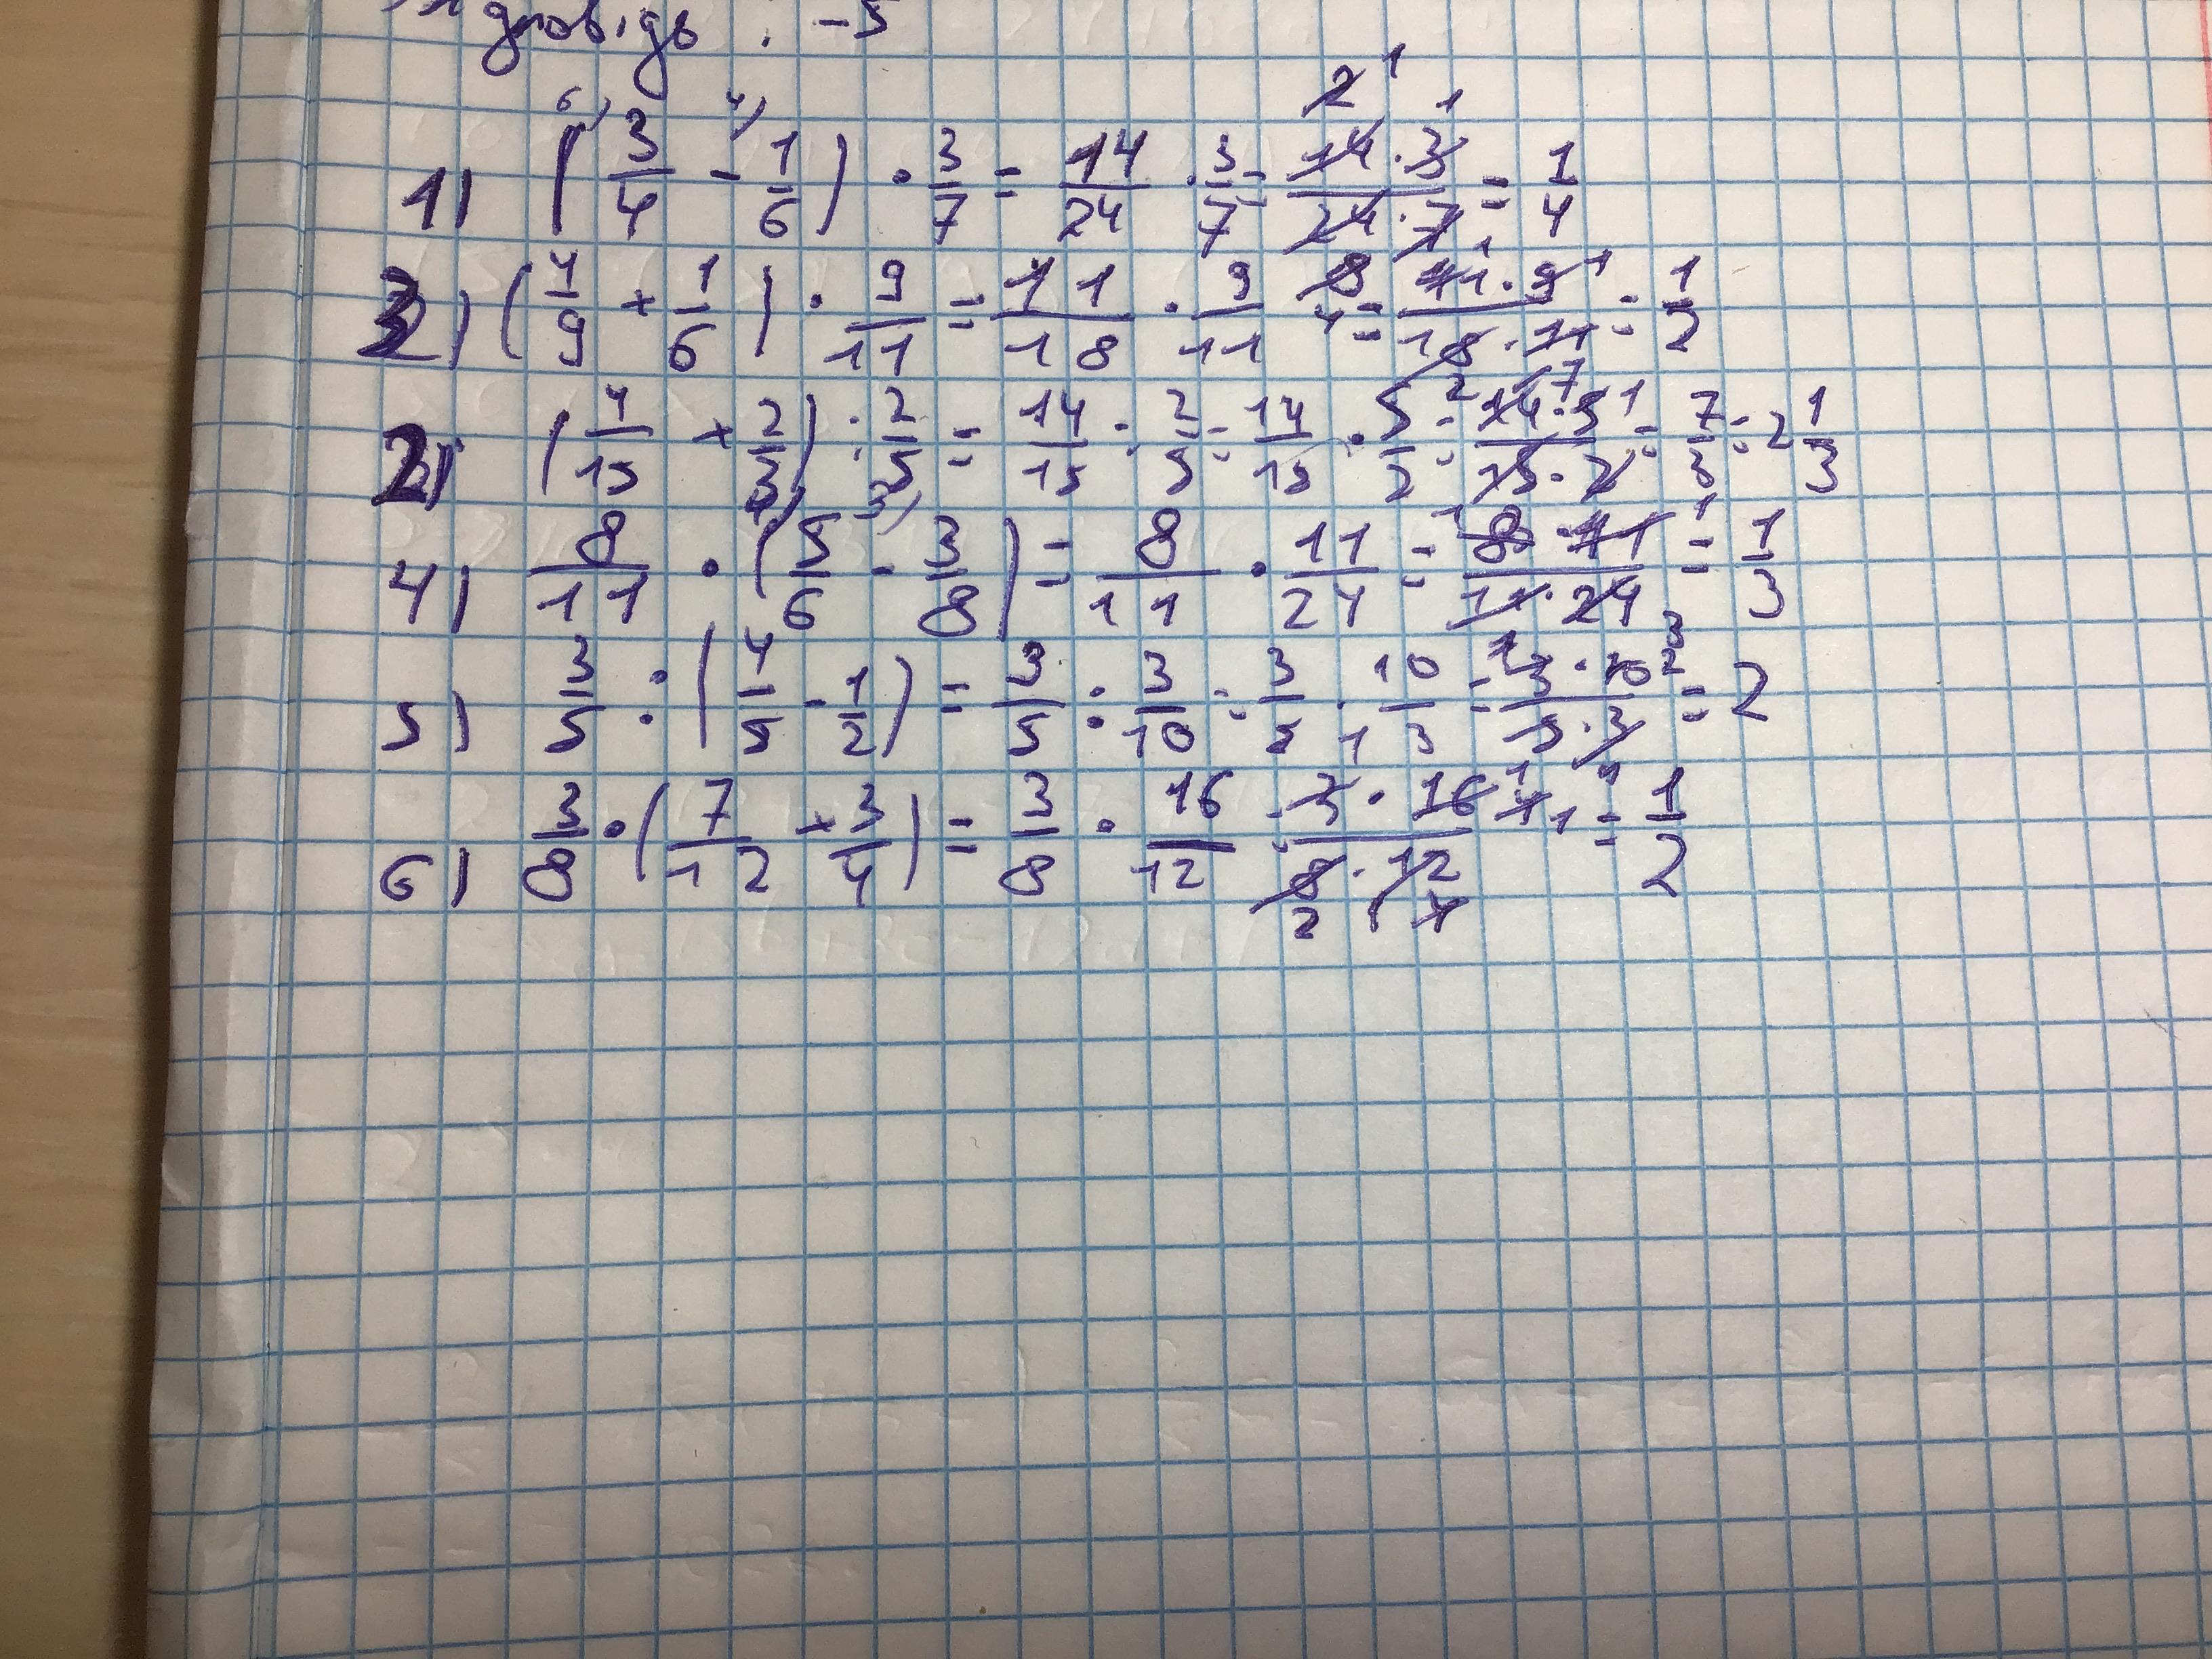 : -5
1) (3/4 - 1/6) · 3/7 = 14/24 · 3/7 = 14·3/24·7 = 1/4
3) (4/9 + 1/6) · 9/11 = 11/18 · 9/11 = 11·9/18·11 = 1/2
2) (4/15 + 2/3) : 2/5 = 14/15 : 2/5 = 14/15 · 5/2 = 14·5/15·2 = 7/3 = 2 1/3
4) 8/11 · (5/6 - 3/8) = 8/11 · 11/24 = 8·11/11·24 = 1/3
5) 3/5 : (4/5 - 1/2) = 3/5 : 3/10 = 3/5 · 10/3 = 3·10/5·3 = 2
6) 3/8 · (7/12 + 3/4) = 3/8 · 16/12 = 3·16/8·12 = 1/2